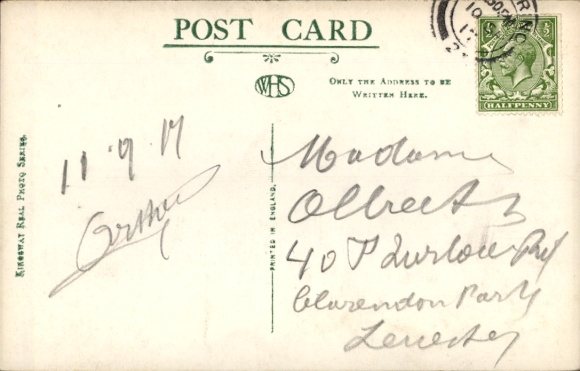 POST CARD
WHS
ONLY THE ADDRESS TO BE
WRITTEN HERE.
HALFPENNY
KINGSWAY REAL PHOTO SERIES.
PRINTED IN ENGLAND.
11.9.17
Arthur
Madame
40
Clarendon Park
Leicester